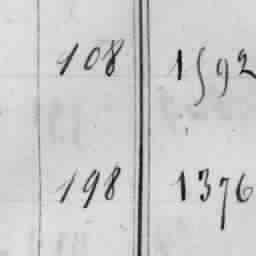 108 1592
198 1376